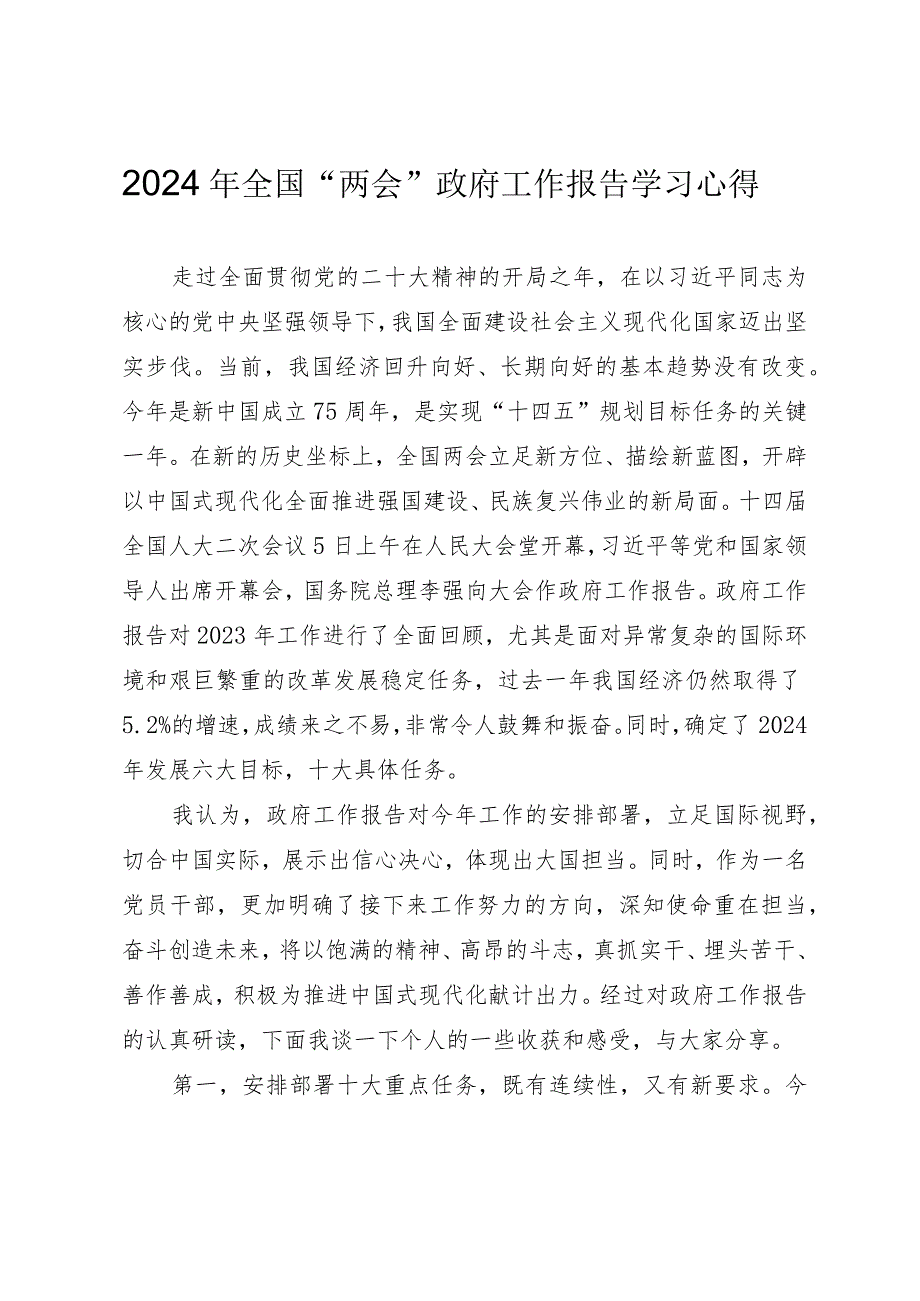 2024年全国“两会”政府工作报告学习心得
走过全面贯彻党的二十大精神的开局之年，在以习近平同志为
核心的党中央坚强领导下，我国全面建设社会主义现代化国家迈出坚
实步伐。当前，我国经济回升向好、长期向好的基本趋势没有改变。
今年是新中国成立75周年，是实现“十四五”规划目标任务的关键
一年。在新的历史坐标上，全国两会立足新方位、描绘新蓝图，开辟
以中国式现代化全面推进强国建设、民族复兴伟业的新局面。十四届
全国人大二次会议5日上午在人民大会堂开幕，习近平等党和国家领
导人出席开幕会，国务院总理李强向大会作政府工作报告。政府工作
报告对2023年工作进行了全面回顾，尤其是面对异常复杂的国际环
境和艰巨繁重的改革发展稳定任务，过去一年我国经济仍然取得了
5.2%的增速，成绩来之不易，非常令人鼓舞和振奋。同时，确定了2024
年发展六大目标，十大具体任务。
我认为，政府工作报告对今年工作的安排部署，立足国际视野，
切合中国实际，展示出信心决心，体现出大国担当。同时，作为一名
党员干部，更加明确了接下来工作努力的方向，深知使命重在担当，
奋斗创造未来，将以饱满的精神、高昂的斗志，真抓实干、埋头苦干、
善作善成，积极为推进中国式现代化献计出力。经过对政府工作报告
的认真研读，下面我谈一下个人的一些收获和感受，与大家分享。
第一，安排部署十大重点任务，既有连续性，又有新要求。今